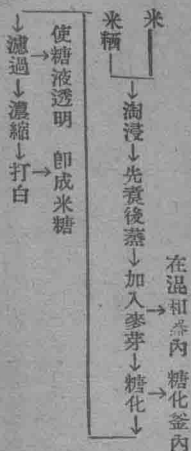 米
米粞
↓淘浸↓先煮後蒸↓加入麥芽↓糖化↓
在混和桶內
糖化釜內
↓濾過↓濃縮↓打白
使糖液透明
卽成米糖